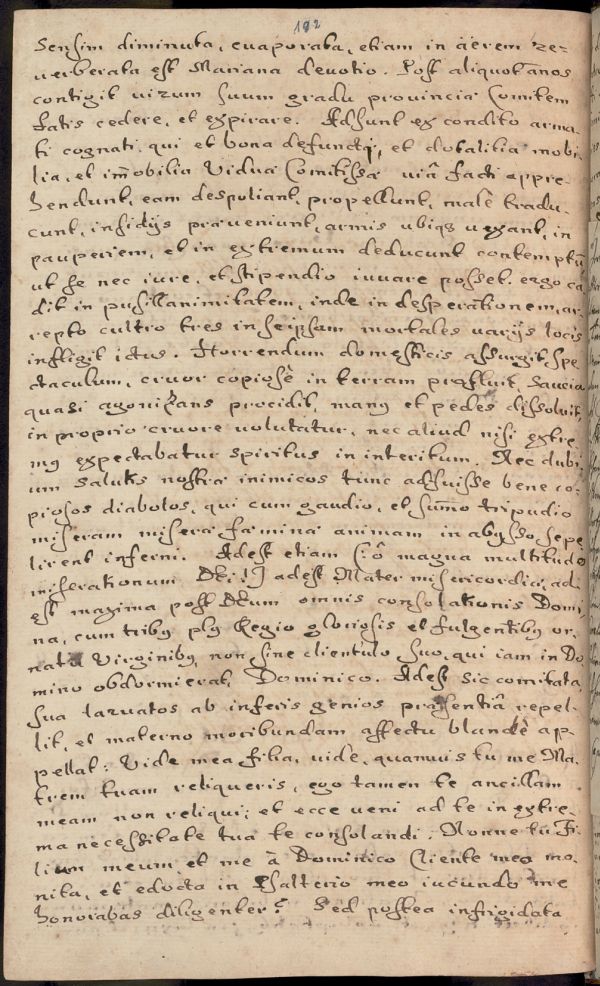 192
sensim diminuta, euaporata, etiam in äerem re-
uerberata est Mariana deuotio. Post aliquot años
contigit uirum suum gradu prouinciæ Comitem
fatis cedere, et expirare. Adsunt ex condito arma-
ti cognati, qui et bona defuncti, et dotalitia mobi-
lia, et im̃obilia Viduæ Comitissæ uiâ facti appre-
hendunt, eam despoliant, propellunt, malè tradu-
cunt, insidijs præueniunt, armis ubiq; uexant, in
pauperiem, et in extremum deducunt contemptũ
ut se nec iure, et stipendio iuuare posset. ergo ca
dit in pusillanimitatem, inde in desperationem, ar
repto cultro tres in seipsam mortales uarijs locis
infligit ictus. Horrendum domesticis assurgit spe
ctaculum, cruor copiosè in terram profluit, saucia
quasi agonizans procidit, manus et pedes dissoluit,
in proprio cruore uolutatur, nec aliud nisi extre
mus expectabatur spiritus in interitum. Nec dubi
um salutis nostræ inimicos tunc adfuisse bene co-
piosos diabolos, qui cum gaudio, et sum̃o tripudio
miseram miseræ fæminæ animam in abysso sepe
lirent inferni. Adest etiam (ô magna multitudo
miserationum DEI!) adest Mater misericordiæ, ad
est maxima post DEum omnis consolationis Domi
na, cum tribus plus Regio gloriosis et fulgentibus or
natu Virginibus, non sine clientulo suo, qui iam in Do
mino obdormierat, Dominico. Adest sic comitata,
sua laruatos ab inferis genios præsentiâ repel-
lit, et materno moribundam affectu blandè ap-
pellat: Vide mea filia, uide, quamuis tu me Ma-
trem tuam reliqueris, ego tamen te ancillam
meam non reliqui; et ecce ueni ad te in extre-
ma necessitate tua te consolandi. Nonne tu Fi-
lium meum et me à Dominico Cliente meo mo-
nita, et edocta in Psalterio meo iucundo me
honorabas diligenter? Sed postea infrigidata